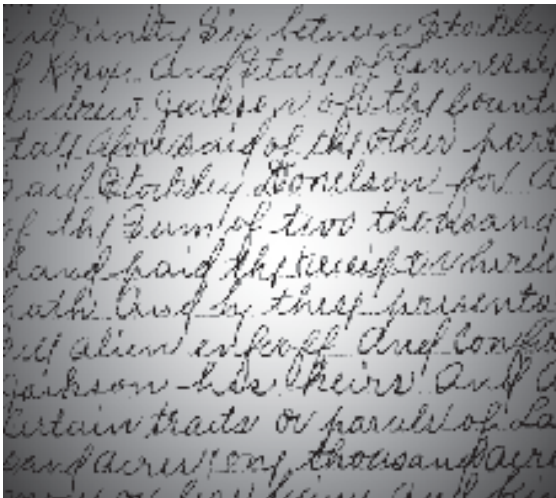 and ninety Six between Stockley
of Knox and State of Tennessee
Andrew Jackson of the Count
State aforesaid of the other part
said Stockley Donelson for a
of the Sum of two thousand
hand paid the receipt whereo
hath and by these presents
sell alien enfeoff and Confir
Jackson his heirs and a
Certain tracts or parcels of La
sand acres one thousand acre